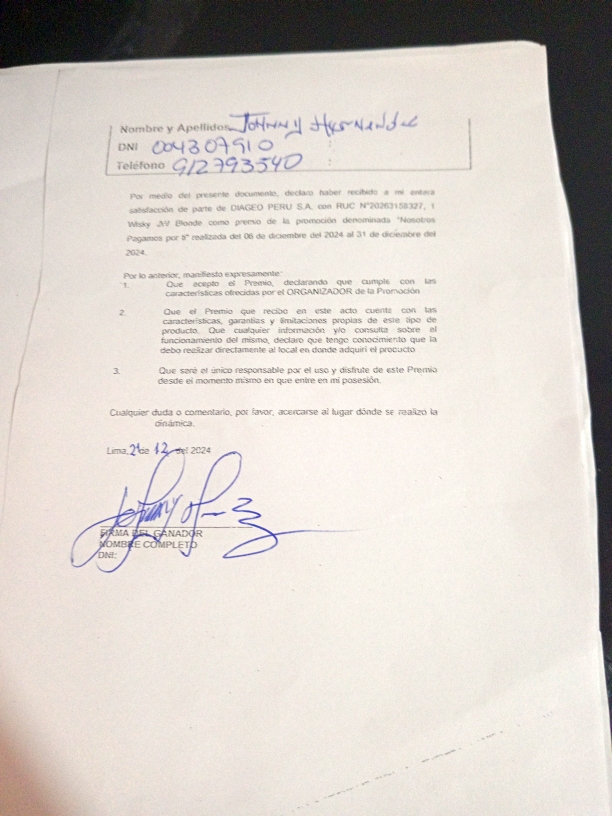 Nombre y Apellidos Johnny Hernandez
DNI 004307910
Teléfono 912793540
Por medio del presente documento, declaro haber recibido a mi entera
satisfacción de parte de DIAGEO PERU S.A. con RUC N°20263158327, 1
Wisky JW Blonde como premio de la promoción denominada "Nosotros
Pagamos por ti" realizada del 06 de diciembre del 2024 al 31 de diciembre del
2024.
Por lo anterior, manifiesto expresamente:
1. Que acepto el Premio, declarando que cumple con las
características ofrecidas por el ORGANIZADOR de la Promoción
2. Que el Premio que recibo en este acto cuenta con las
características, garantías y limitaciones propias de este tipo de
producto. Que cualquier información y/o consulta sobre el
funcionamiento del mismo, declaro que tengo conocimiento que la
debo realizar directamente al local en donde adquirí el producto
3. Que seré el único responsable por el uso y disfrute de este Premio
desde el momento mismo en que entre en mi posesión.
Cualquier duda o comentario, por favor, acercarse al lugar dónde se realizó la
dinámica.
Lima, 21 de 12 del 2024
FIRMA DEL GANADOR
NOMBRE COMPLETO
DNI: